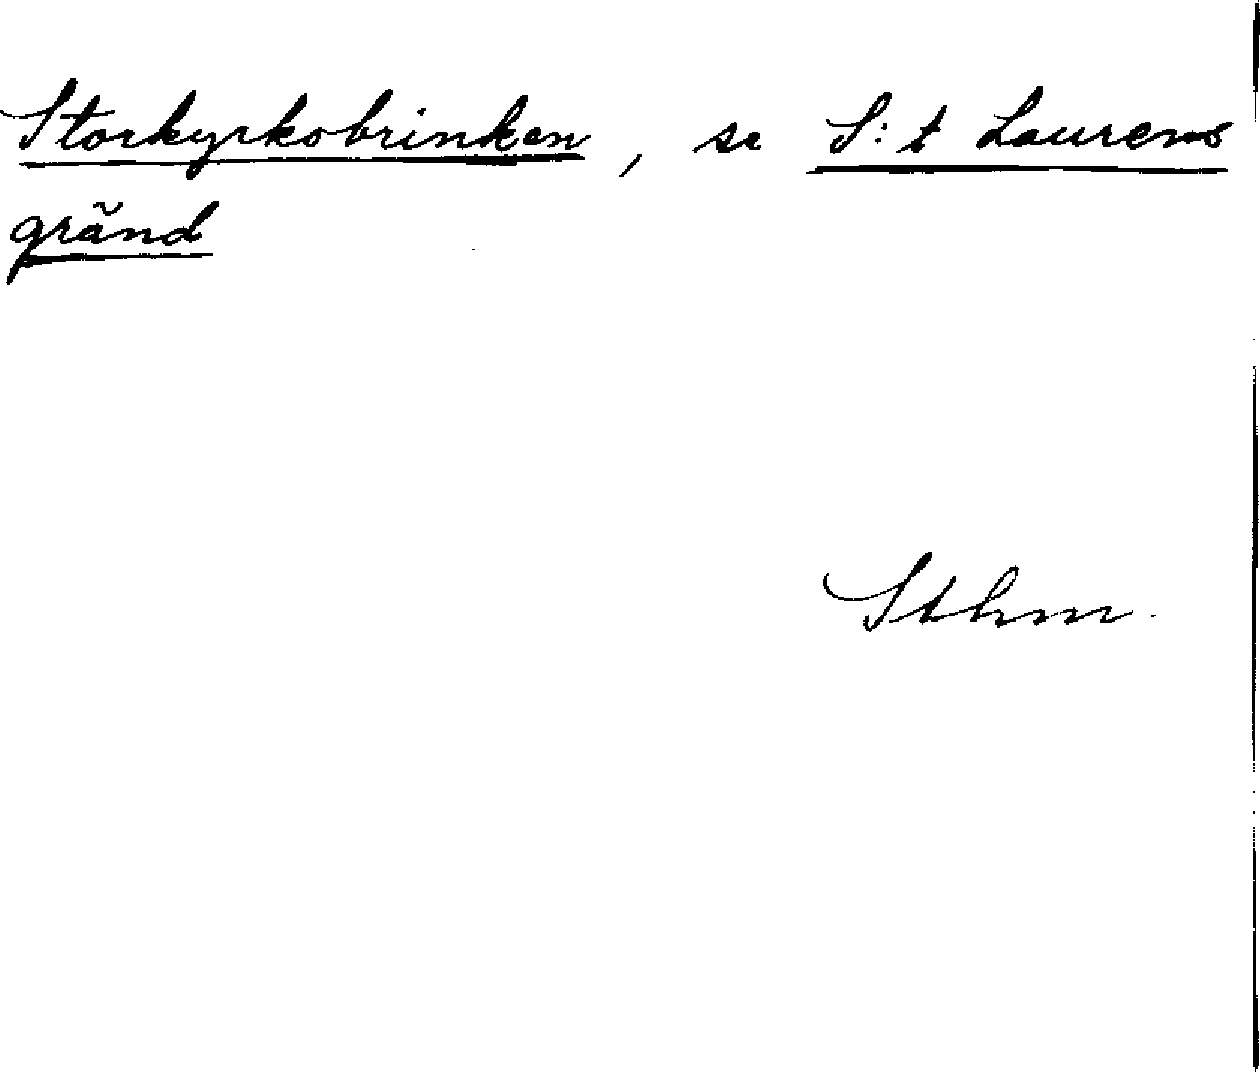 Storkyrkobrinken, se S:t Laurens
gränd
Sthm.